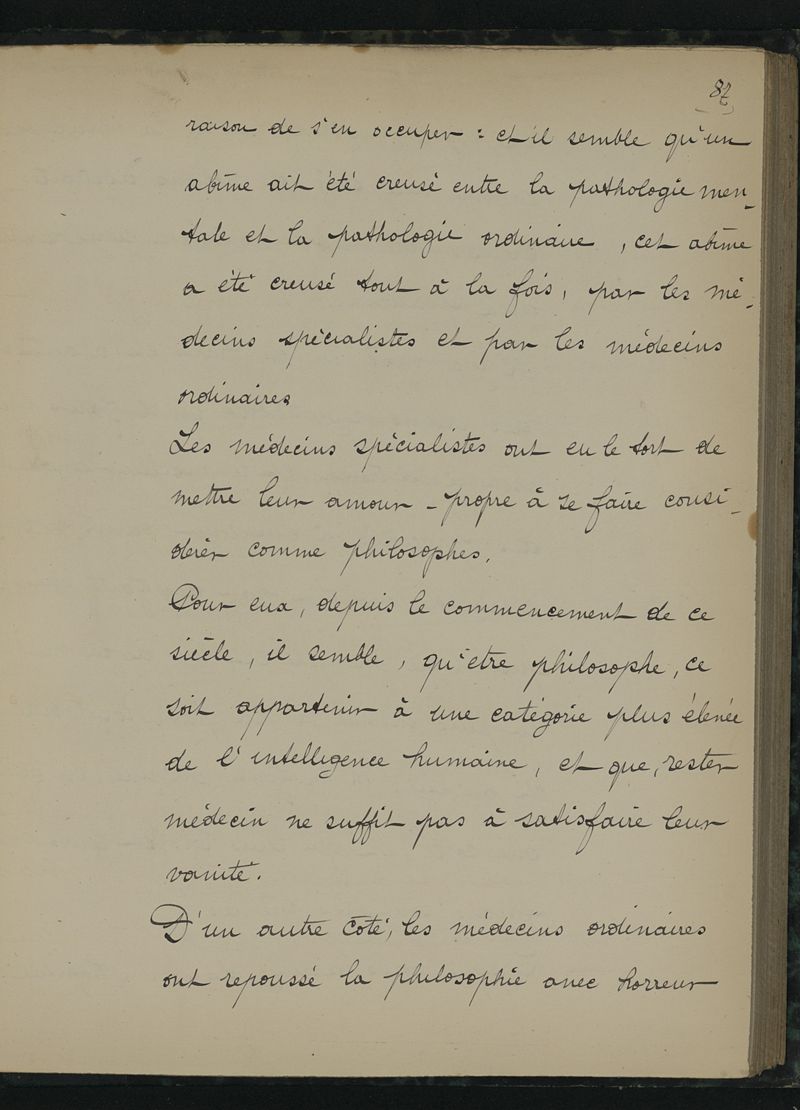 87
raison de s'en occuper : et il semble qu'un
abîme ait été creusé entre la pathologie men-
tale et la pathologie ordinaire, cet abîme
a été creusé tout à la fois, par les mé-
decins spécialistes et par les médecins
ordinaires.
Les médecins spécialistes ont eu le tort de
mettre leur amour-propre à se faire consi-
dérer comme philosophes.
Pour eux, depuis le commencement de ce
siècle, il semble, qu'être philosophe, ce
soit appartenir à une catégorie plus élevée
de l'intelligence humaine, et que, rester
médecin ne suffit pas à satisfaire leur
vanité.
D'un autre côté, les médecins ordinaires
ont repoussé la philosophie avec horreur